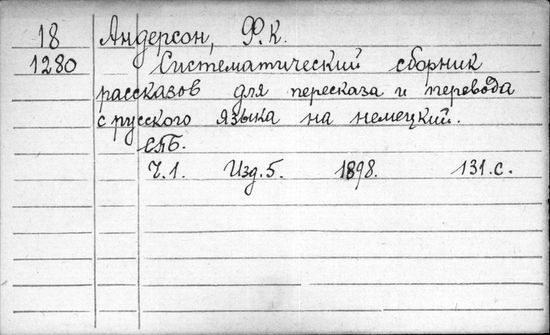 18 Андерсон, Ф.К.
1280 Систематический сборник
рассказов для пересказа и перевода
с русского языка на немецкий.
СПБ.
Ч.1. Изд.5. 1898. 131.с.